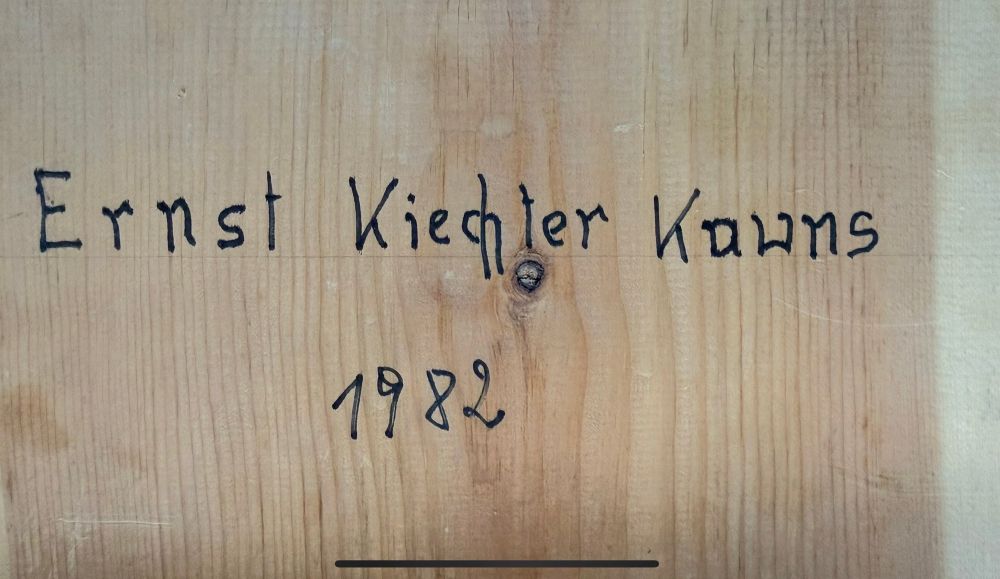 Ernst Kiechter Kauns
1982